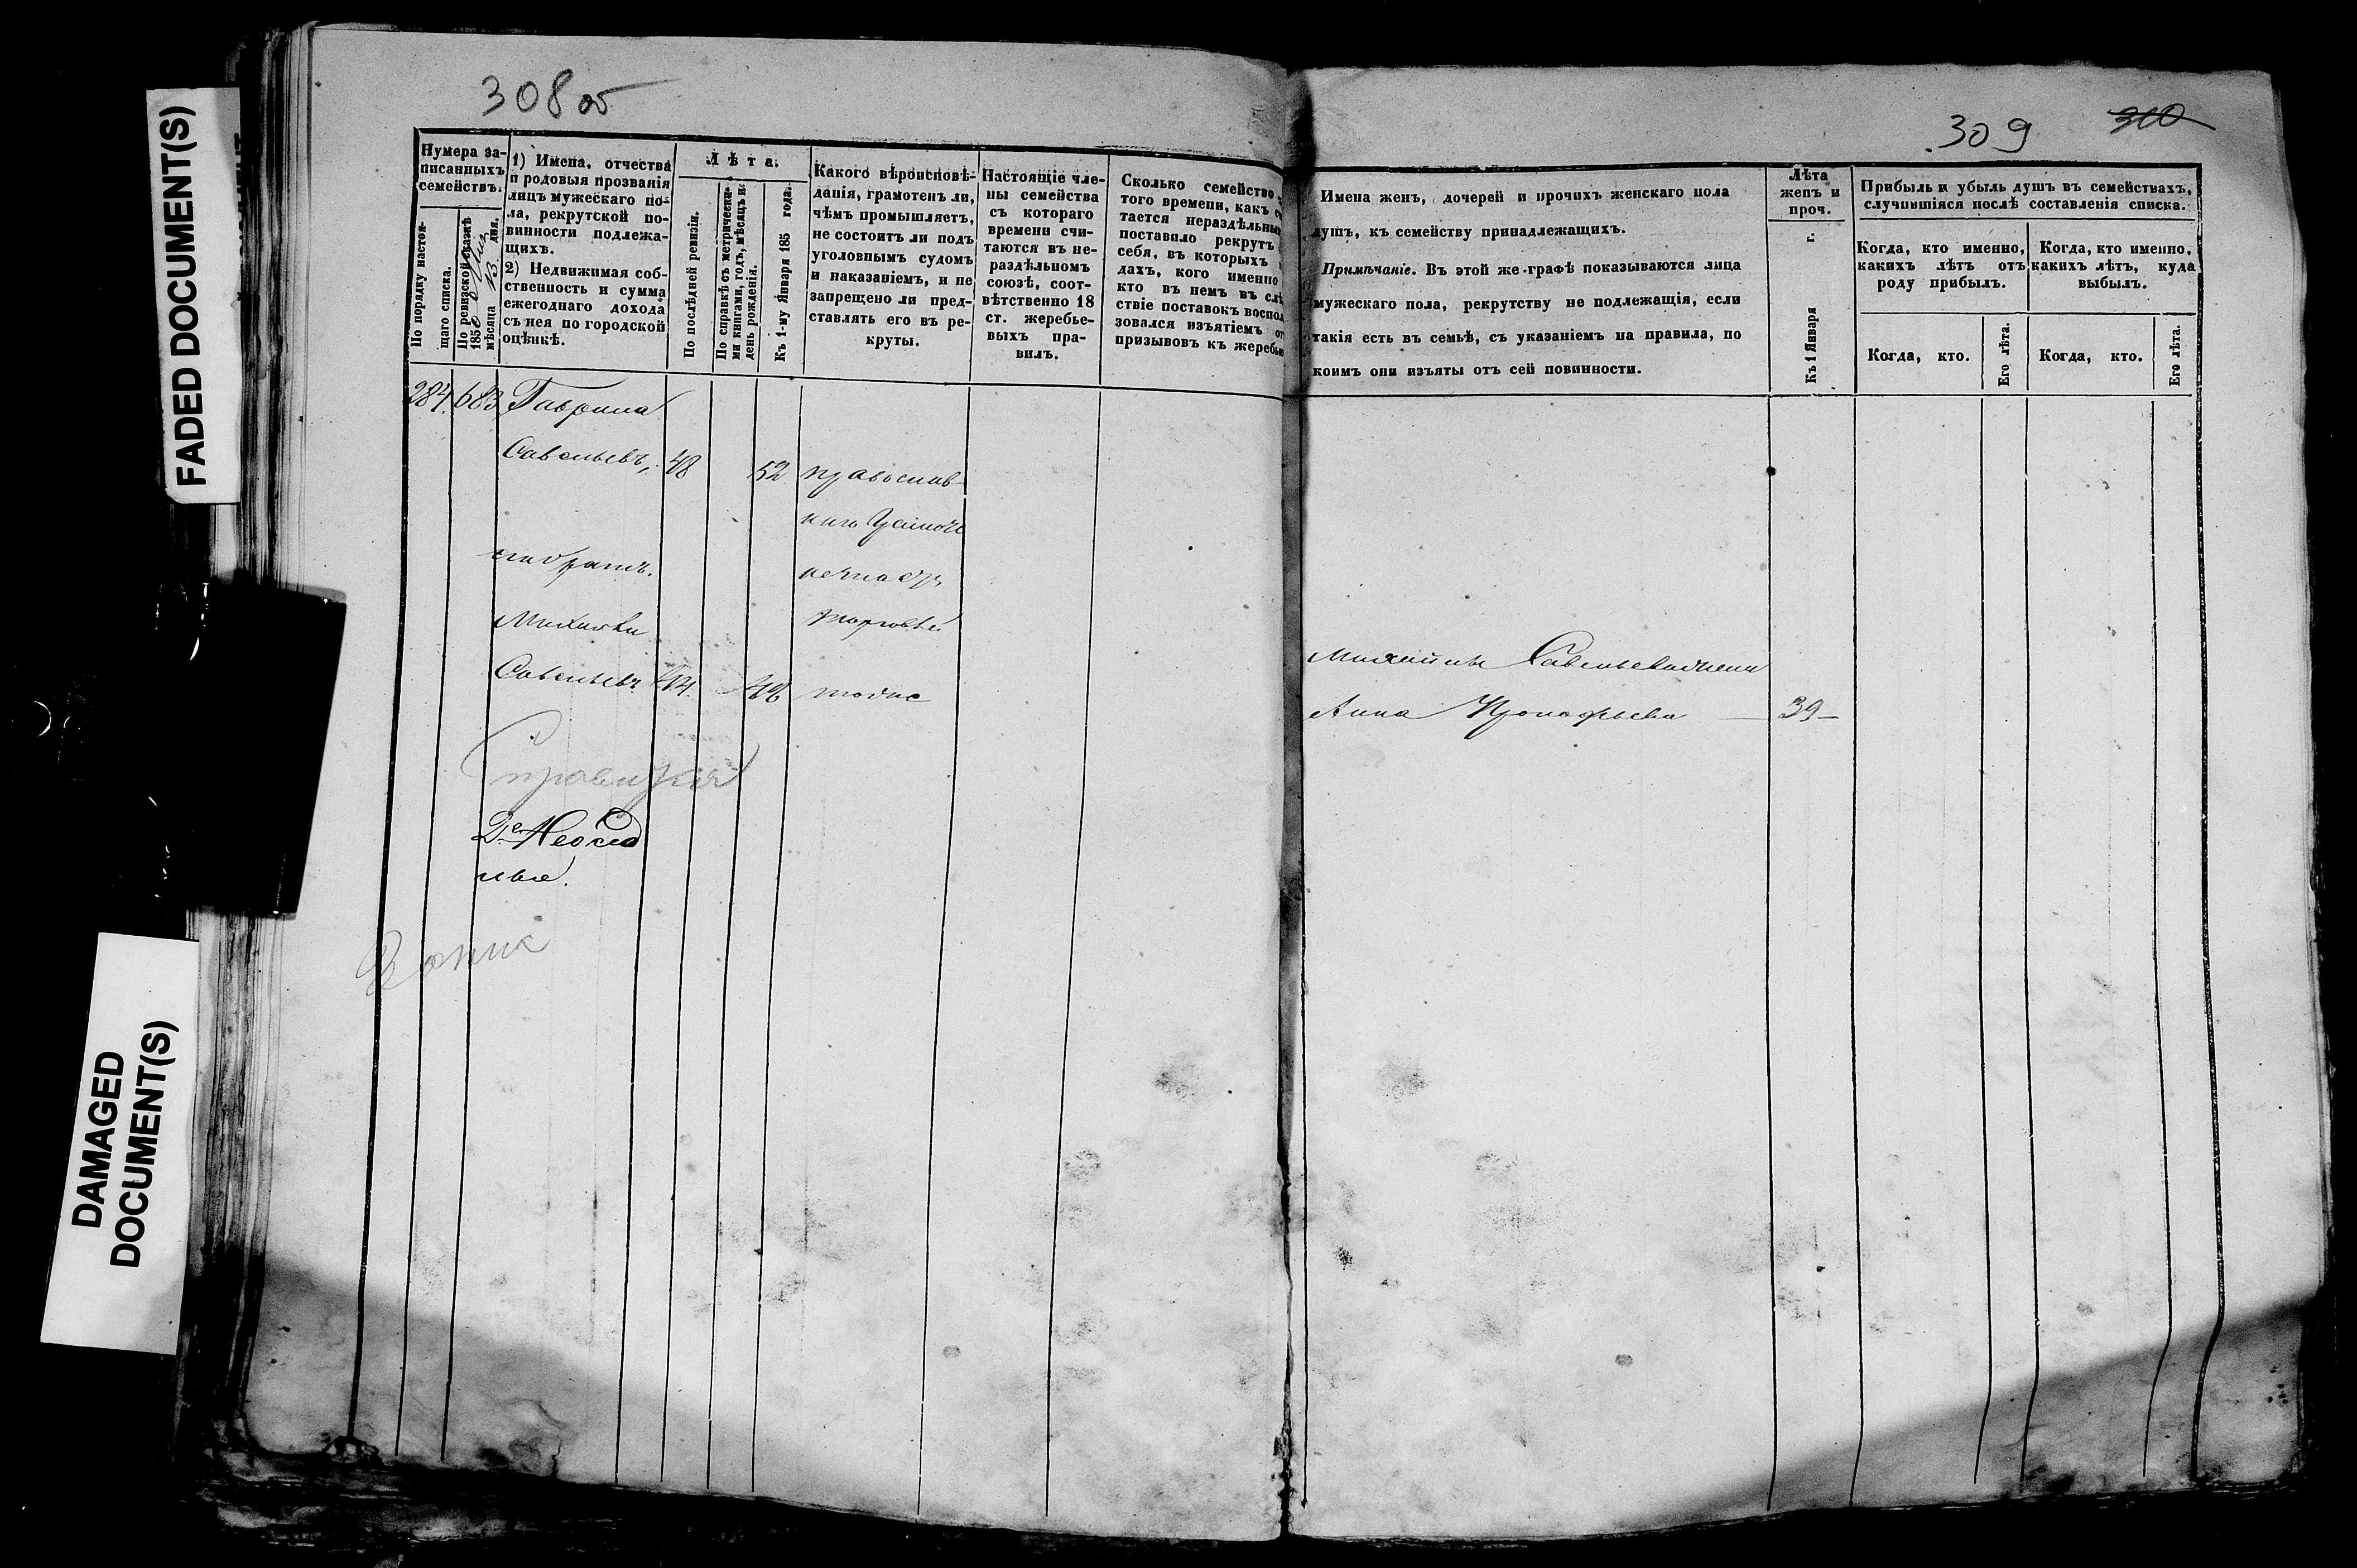 FADED DOCUMENT(S)
DAMAGED
DOCUMENT(S)
308 об
Нумера за-
писанныхъ
семействъ.
По порядку настоя-
щаго списка.
По ревизской сказкѣ
185
мѣсяца 13 дня.
1) Имена, отчества
и родовыя прозванія
лицъ мужескаго по-
ла, рекрутской по-
винности подлежа-
щихъ.
2) Недвижимая соб-
ственность и сумма
ежегоднаго дохода
съ нея по городской
оцѣнкѣ.
Лѣта.
По послѣдней ревизіи.
По справкѣ съ метрически-
ми книгами, годъ, мѣсяцъ и
день рожденія.
Къ 1-му Января 185 года.
Какого вѣроисповѣ-
данія, грамотенъ ли,
чѣмъ промышляетъ,
не состоитъ ли подъ
уголовнымъ судомъ
и наказаніемъ, и не
запрещено ли пред-
ставлять его въ ре-
круты.
Настоящіе чле-
ны семейства
съ котораго
времени счи-
таются въ не-
раздѣльномъ
союзѣ, соот-
вѣтственно 18
ст. жеребье-
выхъ пра-
вилъ.
Сколько семейство
того времени, какъ
тается нераздѣльны
поставило рекрутъ
себя, въ которыхъ
дахъ, кого именно
кто въ немъ въ слѣ
ствіе поставокъ воспол
зовался изъятіемъ от
призывовъ къ жеребью
284. 683 Гаврила
Савельевъ, 48 52 православ
наго
его братъ.
Михайла торговлей
Савельевъ 44. 48 тоже
309 310
Имена женъ, дочерей и прочихъ женскаго пола
душъ, къ семейству принадлежащихъ.
Примѣчаніе. Въ этой же графѣ показываются лица
мужескаго пола, рекрутству не подлежащія, если
такія есть въ семьѣ, съ указаніемъ на правила, по
коимъ они изъяты отъ сей повинности.
Лѣта
женъ и
проч.
Къ 1 Января г.
Прибыль и убыль душъ въ семействахъ,
случившіяся послѣ составленія списка.
Когда, кто именно,
какихъ лѣтъ отъ
роду прибылъ.
Когда, кто именно,
какихъ лѣтъ, куда
выбылъ.
Когда, кто.
Его лѣта.
Когда, кто.
Его лѣта.
Михайлы Савельева жена
Анна Прокофьева — 39 —